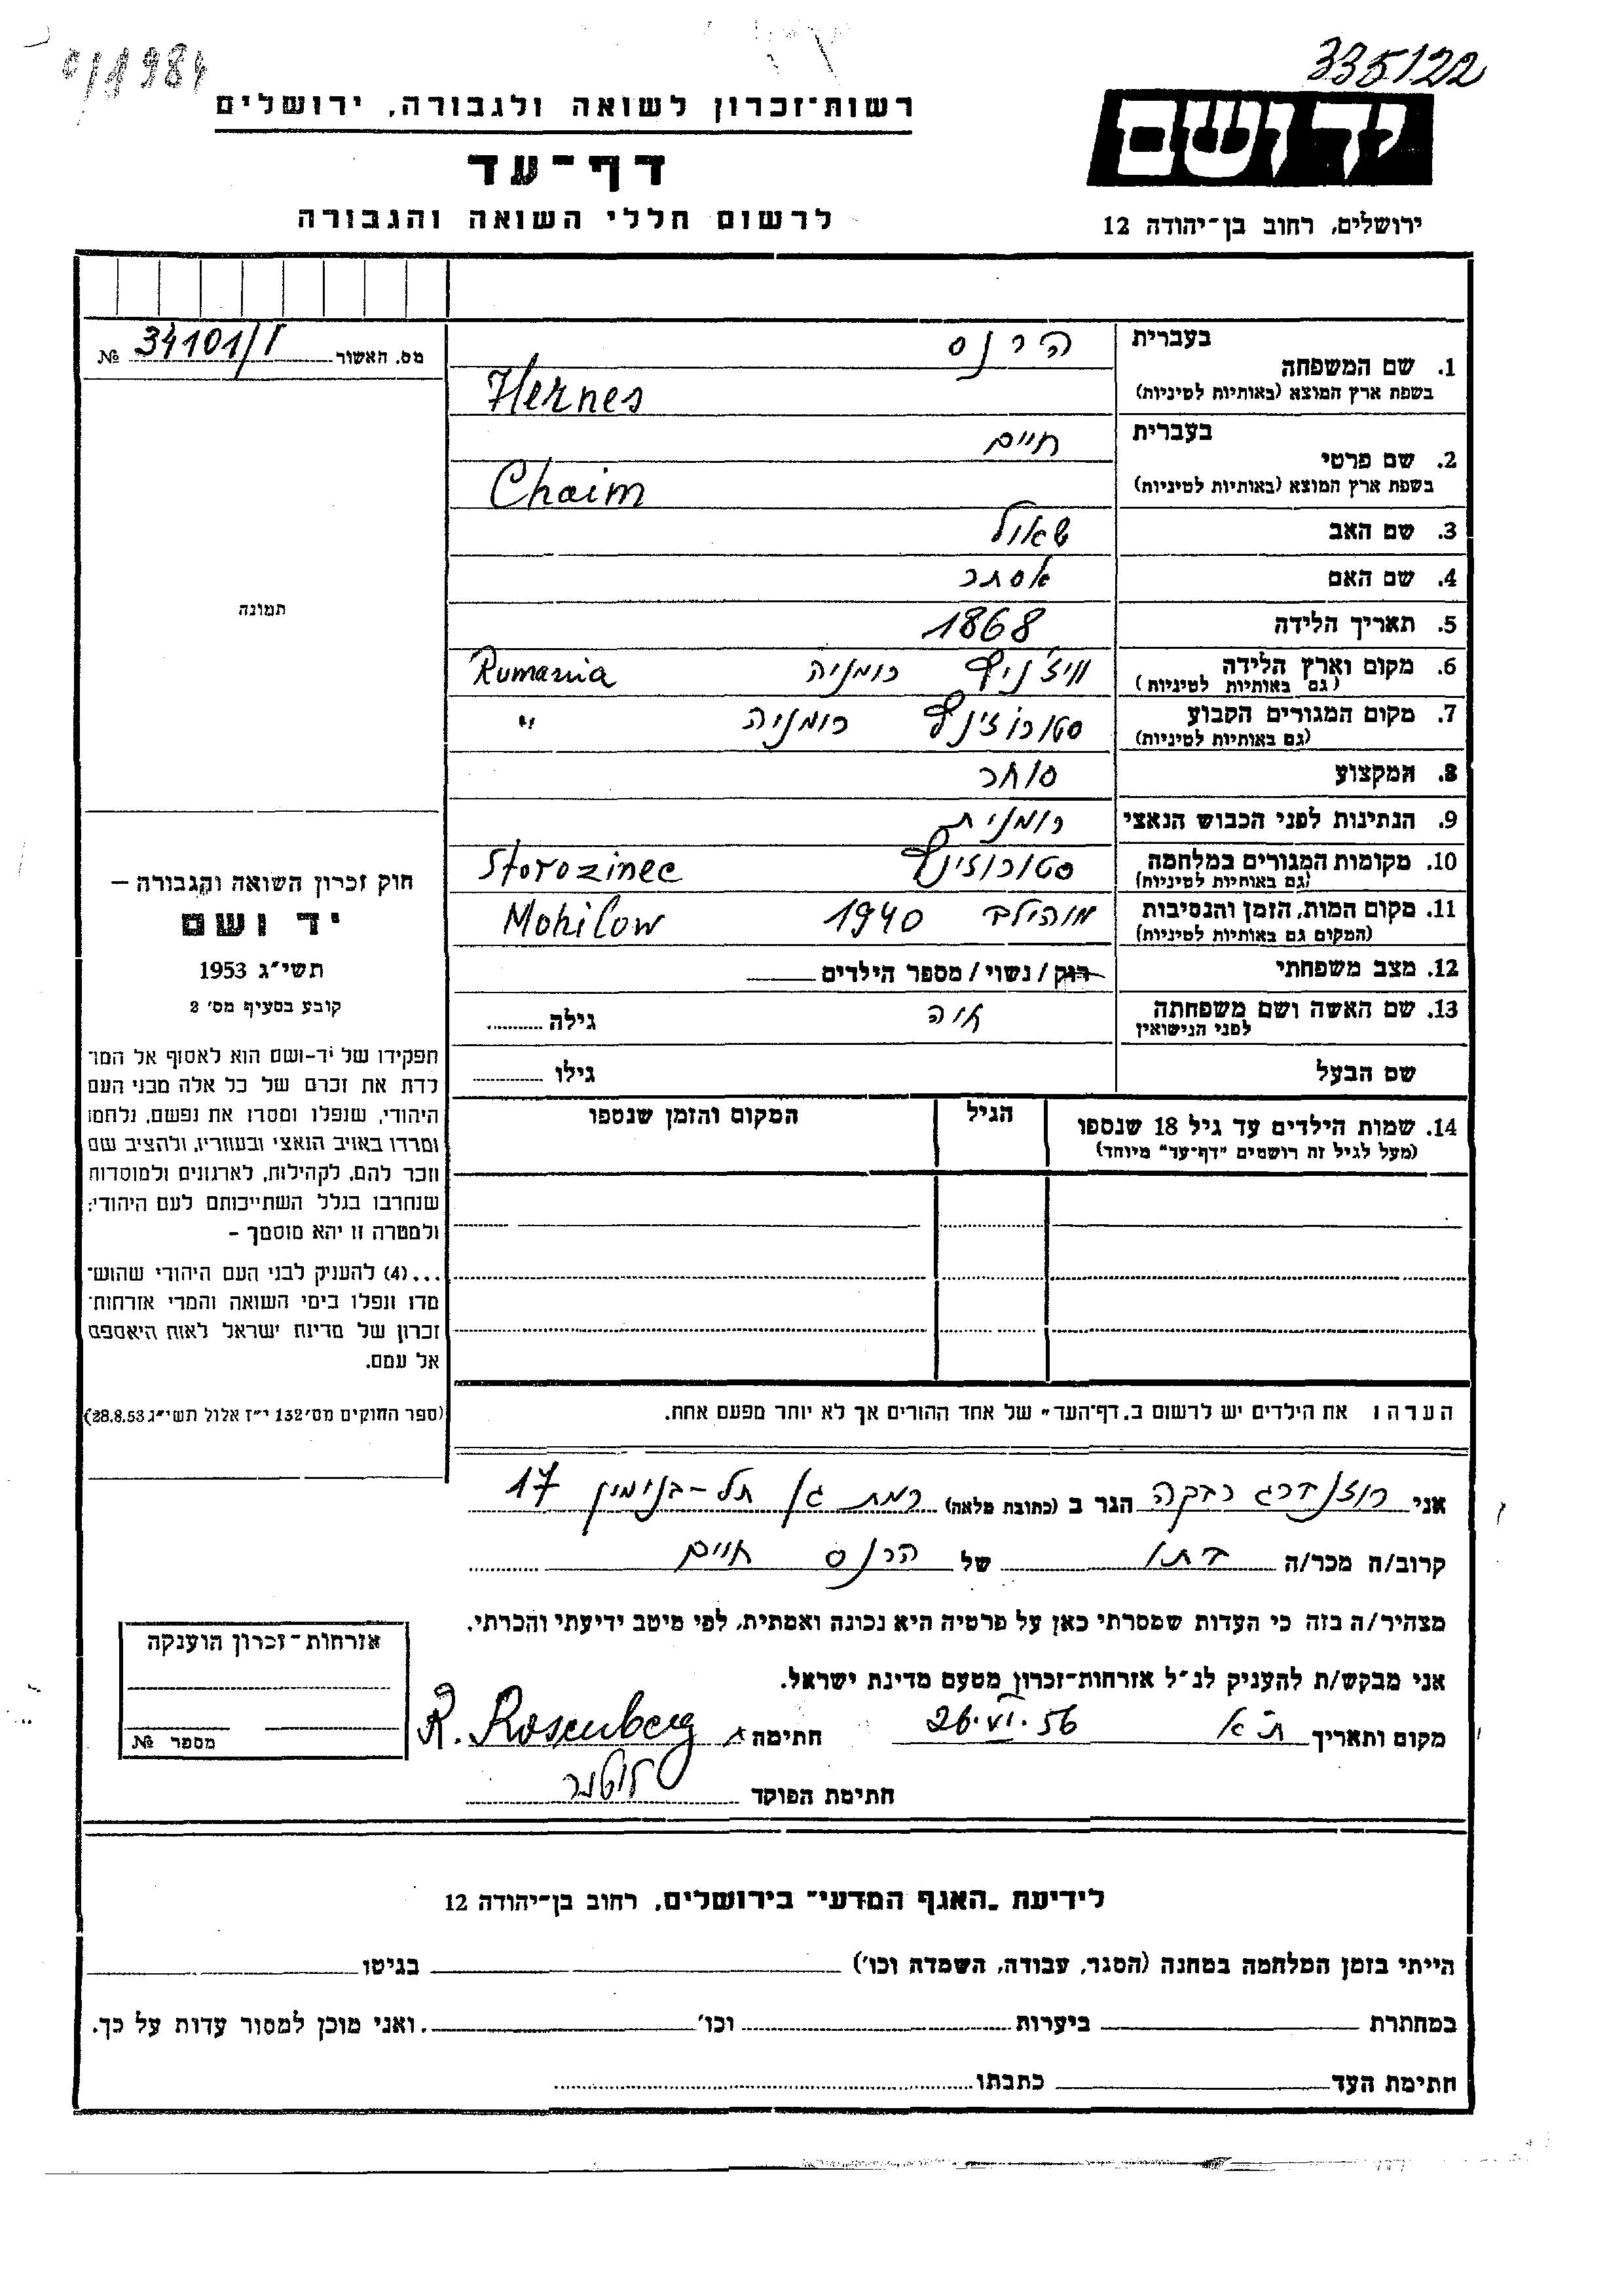 335122
0/1984
יד ושם
רשות־זכרון לשואה ולגבורה, ירושלים
דף־עד
לרשום חללי השואה והגבורה
ירושלים, רחוב בן־יהודה 12
מס. האשור № 34101/I
תמונה
חוק זכרון השואה והגבורה –
יד ושם
תשי״ג 1953
קובע בסעיף מס׳ 2
תפקידו של יד-ושם הוא לאסוף אל המו־
לדת את זכרם של כל אלה מבני העם
היהודי, שנפלו ומסרו את נפשם, נלחמו
ומרדו באויב הנאצי ובעוזריו, ולהציב שם
וזכר להם, לקהילות, לארגונים ולמוסדות
שנחרבו בגלל השתייכותם לעם היהודי;
ולמטרה זו יהא מוסמך –
...(4) להעניק לבני העם היהודי שהוש־
מדו ונפלו בימי השואה והמרי אזרחות־
זכרון של מדינת ישראל לאות היאספם
אל עמם.
(ספר החוקים מס׳ 132 י״ז אלול תשי״ג 28.8.53)
1. שם המשפחה בעברית הרנס
בשפת ארץ המוצא (באותיות לטיניות) Hernes
2. שם פרטי בעברית חיים
בשפת ארץ המוצא (באותיות לטיניות) Chaim
3. שם האב שאול
4. שם האם אסתר
5. תאריך הלידה 1868
6. מקום וארץ הלידה (גם באותיות לטיניות) ויז׳ניץ רומניה Rumania
7. מקום המגורים הקבוע (גם באותיות לטיניות) סטורוז׳ינץ רומניה "
8. המקצוע סוחר
9. הנתינות לפני הכבוש הנאצי רומנית
10. מקומות המגורים במלחמה (גם באותיות לטיניות) סטורוזינץ Storozinec
11. מקום המות, הזמן והנסיבות (המקום גם באותיות לטיניות) מוהילב 1940 Mohilow
12. מצב משפחתי רוק / נשוי / מספר הילדים
13. שם האשה ושם משפחתה לפני הנישואין גילה
שם הבעל גילו
14. שמות הילדים עד גיל 18 שנספו הגיל המקום והזמן שנספו
(מעל לגיל זה רושמים "דף־עד" מיוחד)
הערה: את הילדים יש לרשום ב„דף־העד" של אחד ההורים אך לא יותר מפעם אחת.
אני רוזנברג רבקה הגר ב (כתובת מלאה) רמת גן תל-בנימין 17
קרוב/ה מכר/ה בתו של הרנס חיים
מצהיר/ה בזה כי העדות שמסרתי כאן על פרטיה היא נכונה ואמתית, לפי מיטב ידיעתי והכרתי.
אני מבקש/ת להעניק לנ״ל אזרחות־זכרון מטעם מדינת ישראל.
מקום ותאריך ת״א 26.VI.56 חתימה R. Rosenberg
חתימת הפוקד
אזרחות־זכרון הוענקה
מספר №
לידיעת „האגף המדעי" בירושלים, רחוב בן־יהודה 12
הייתי בזמן המלחמה במחנה (הסגר, עבודה, השמדה וכו׳) בגיטו
במחתרת ביערות וכו׳ ואני מוכן למסור עדות על כך.
חתימת העד כתבתו